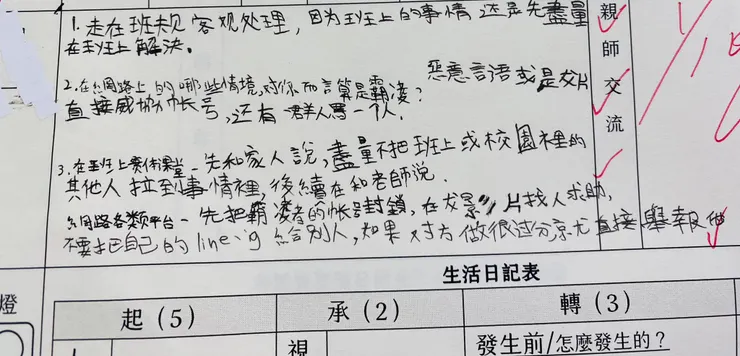 1.走在班规客观处理，因为班上的事情还是先盡量
在班上解決。
2.在網路上的哪些情境,对你而言算是霸凌？
惡意言语或是
直接威协帐号,还有 群人罵一个人.
3.在班上实体課堂-先和家人說,盡量不把班上或校園裡的
其他人拉到事情裡,後續在和老師说.
網路各类平台-先把霸凌者的帐号封鎖,在 片找人求助,
不要把自己的line、ig給別人,如果对方做很过分京尤直接舉報他
親師交流
生活日記表
燈
起(5)
承(2)
轉(3)
視
發生前/怎麼發生的？